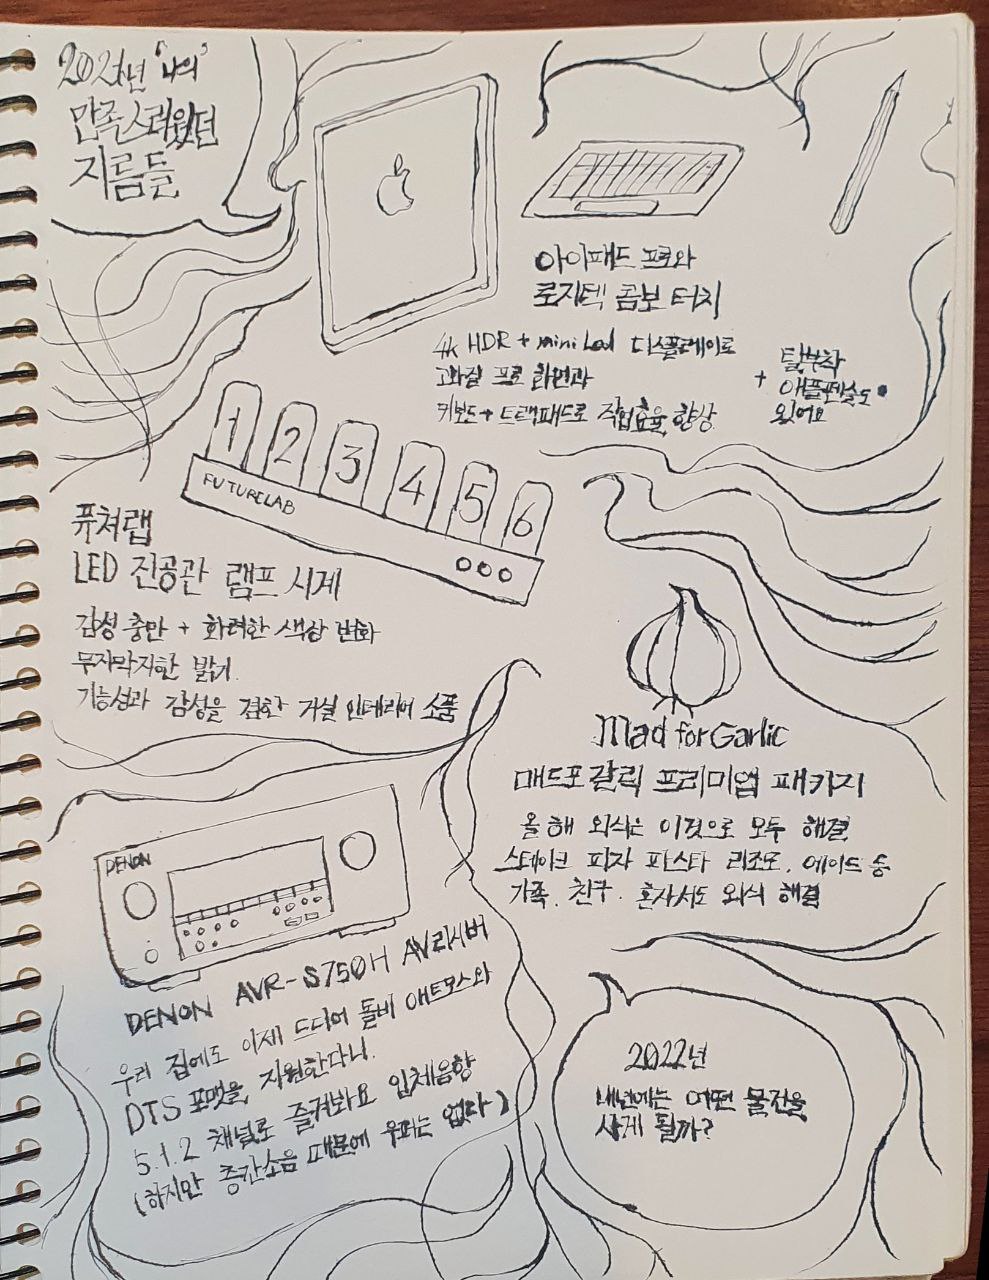 2021년 '나의'
만족스러웠던
지름들
아이패드 프로와
로지텍 콤보 터치
4k HDR + mini Led 디스플레이로
고화질 프로 화면과
키보드 + 트랙패드로 작업효율 향상
+ 탈부착
애플펜슬도
있어요
1 2 3 4 5 6
FUTURELAB
퓨쳐랩
LED 진공관 램프 시계
감성 충만 + 화려한 색상 변화
무자막지한 밝기.
기능성과 감성을 겸한 거실 인테리어 소품
Mad for Garlic
매드포갈릭 프리미엄 패키지
올해 외식은 이것으로 모두 해결
스테이크 피자 파스타 리조또, 에이드 등
가족, 친구. 혼자서도 외식 해결
DENON
DENON AVR-S750H AV리시버
우리 집에도 이제 드디어 돌비 애트모스와
DTS 포맷을 지원한다니.
5.1.2 채널로 즐겨봐요 입체음향
(하지만 층간소음 때문에 우퍼는 없다)
2022년
내년에는 어떤 물건을
사게 될까?